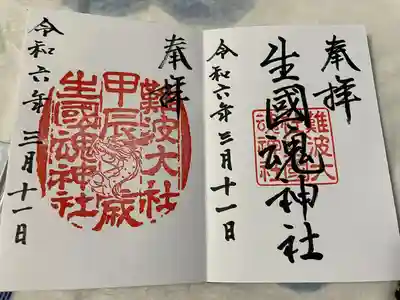 奉拝
難波大社
甲辰歳
生國魂神社
令和六年三月十一日
奉拝
生國魂神社
難波大
令和六年三月十一日